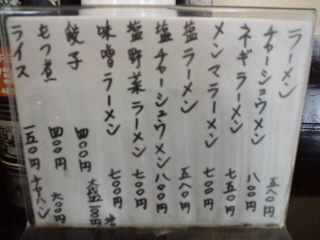 ラーメン 五八〇円
チャーシュウメン 八〇〇円
ネギラーメン 七五〇円
メンマラーメン 七〇〇円
塩ラーメン 五八〇円
塩チャーシュウメン 八〇〇円
塩野菜ラーメン 七〇〇円
味噌ラーメン 七〇〇円
餃子 四〇〇円
もつ煮 四〇〇円
ライス 一五〇円
チャーハン 六〇〇円